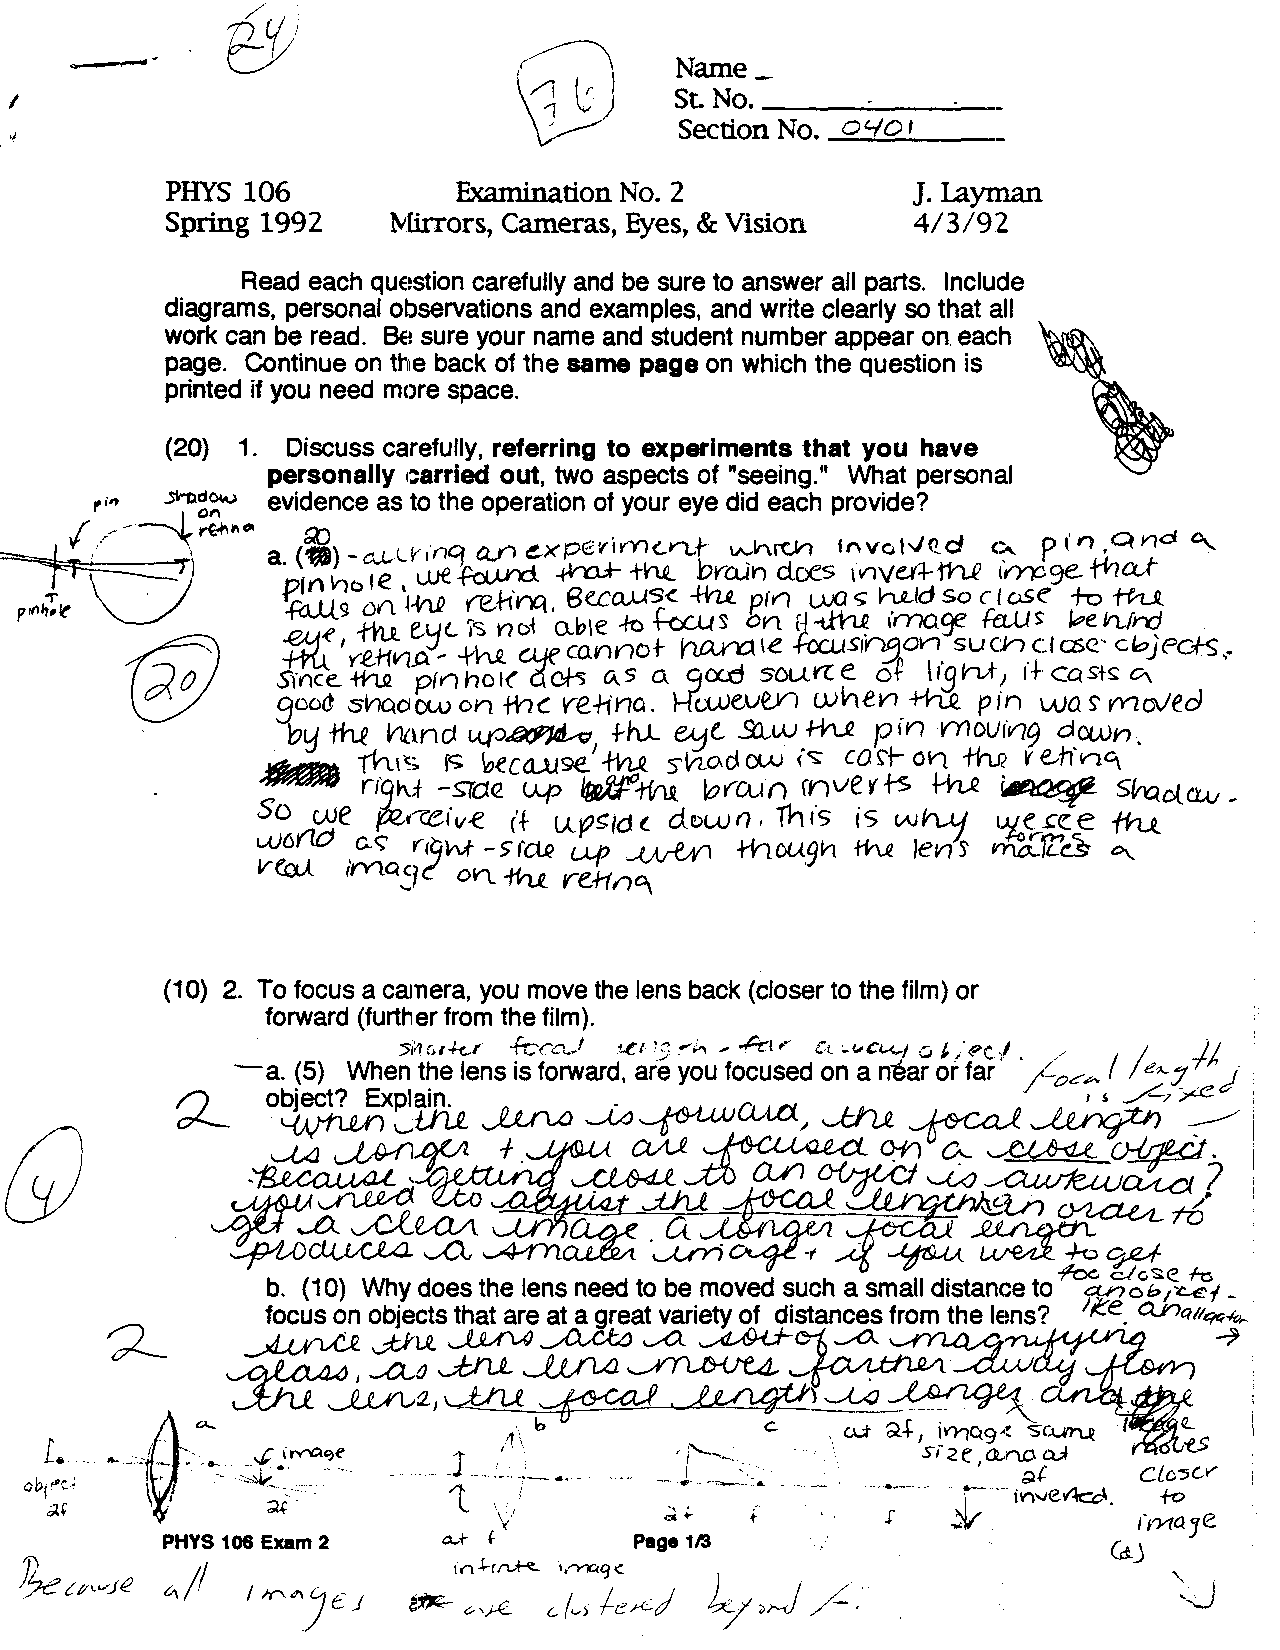 24
76
Name _
St. No.
Section No. 0401
PHYS 106 Examination No. 2 J. Layman
Spring 1992 Mirrors, Cameras, Eyes, & Vision 4/3/92
Read each question carefully and be sure to answer all parts. Include
diagrams, personal observations and examples, and write clearly so that all
work can be read. Be sure your name and student number appear on each
page. Continue on the back of the same page on which the question is
printed if you need more space.
(20) 1. Discuss carefully, referring to experiments that you have
personally carried out, two aspects of "seeing." What personal
evidence as to the operation of your eye did each provide?
pin
shadow
on
retina
pinhole
20
a. ( ) - during an experiment which involved a pin, and a
pinhole, we found that the brain does invert the image that
falls on the retina. Because the pin was held so close to the
eye, the eye is not able to focus on it - the image falls behind
the retina - the eye cannot handle focusing on such close objects.
Since the pinhole acts as a good source of light, it casts a
good shadow on the retina. However when the pin was moved
by the hand up, the eye saw the pin moving down.
This is because the shadow is cast on the retina
right-side up the brain inverts the shadow -
So we perceive it upside down. This is why we see the
world as right-side up even though the lens forms a
real image on the retina
20
(10) 2. To focus a camera, you move the lens back (closer to the film) or
forward (further from the film).
shorter focal length - far away object.
a. (5) When the lens is forward, are you focused on a near or far
object? Explain.
focal length
is fixed
2
4
When the lens is forward, the focal length
is longer + you are focused on a close object.
Because getting close to an object is awkward?
you need to adjust the focal length in order to
get a clear image. a longer focal length
produces a smaller image + if you were to get
too close to
an object -
like an alligator
b. (10) Why does the lens need to be moved such a small distance to
focus on objects that are at a great variety of distances from the lens?
2
Since the lens acts a sort of a magnifying
glass, as the lens moves farther away from
the lens, the focal length is longer and the
image
moves
closer
to
image
(d)
a
object
2f
image
2f
b
at f
infinite image
c
2f f f
at 2f, image same
size, and at
2f
inverted.
PHYS 106 Exam 2 Page 1/3
Because all images are clustered beyond f.